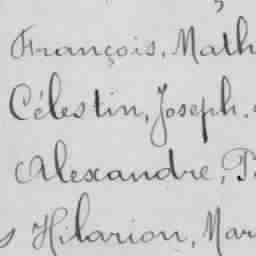 François, Math
Célestin, Joseph,
Alexandre, P
Hilarion, Mar